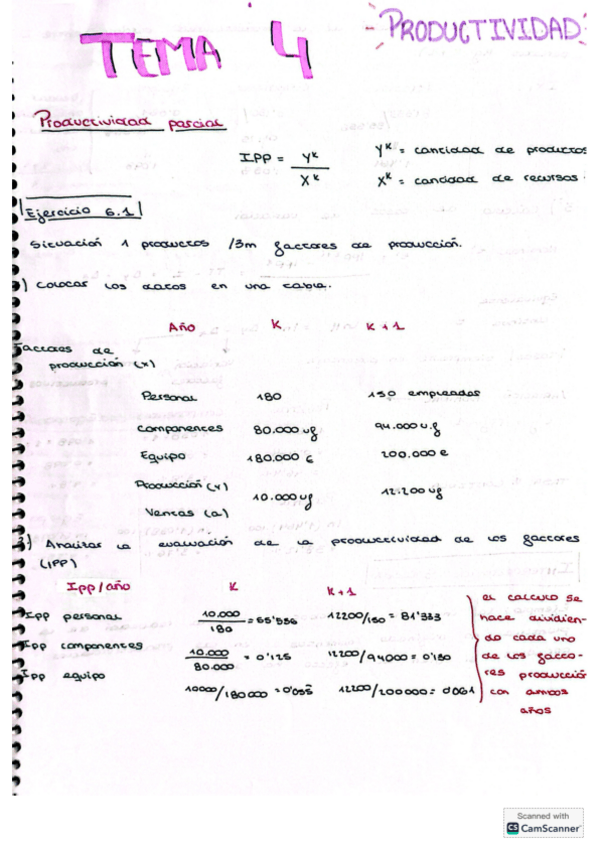 TEMA 4
- PRODUCTIVIDAD -
Productividad parcial
IPP = Y^K / X^K
Y^K = cantidad de productos
X^K = cantidad de recursos
Ejercicio 6.1
Situación 1 productos /3m factores de producción.
1) Colocar los datos en una tabla.
Año K K+1
Factores de
producción (x)
Personal 180 150 empleados
Componentes 80.000 ug 94.000 u.g
Equipo 180.000 € 200.000 e
Producción (Y) 10.000 ug 12.200 ug
Ventas (a)
2) Analizar la evaluación de la productividad de los factores
(IPP)
Ipp/año K K+1
Ipp personal 10.000/180 = 55'556 12200/150 = 81'333
Ipp componentes 10.000/80.000 = 0'125 12200/94000 = 0'130
Ipp equipo 10000/180000 = 0'055 12200/200000 = 0'061
el calculo se
hace dividien-
do cada uno
de los facto-
res producción
con ambos
años
Scanned with
CS CamScanner